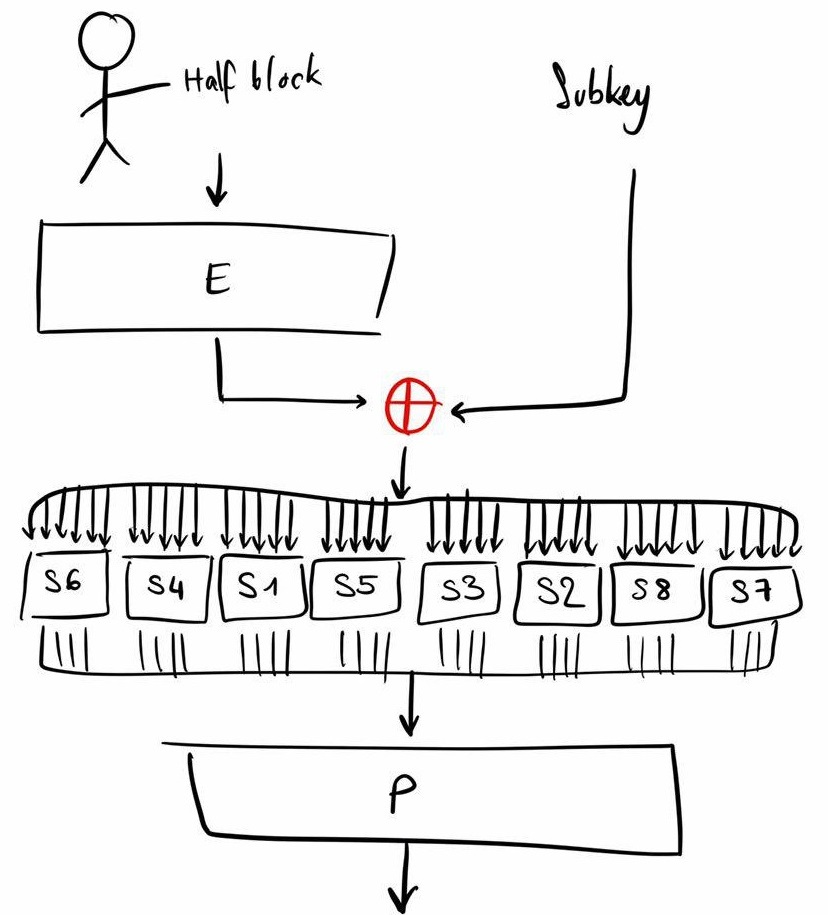 Half block
Subkey
E
S6 S4 S1 S5 S3 S2 S8 S7
P